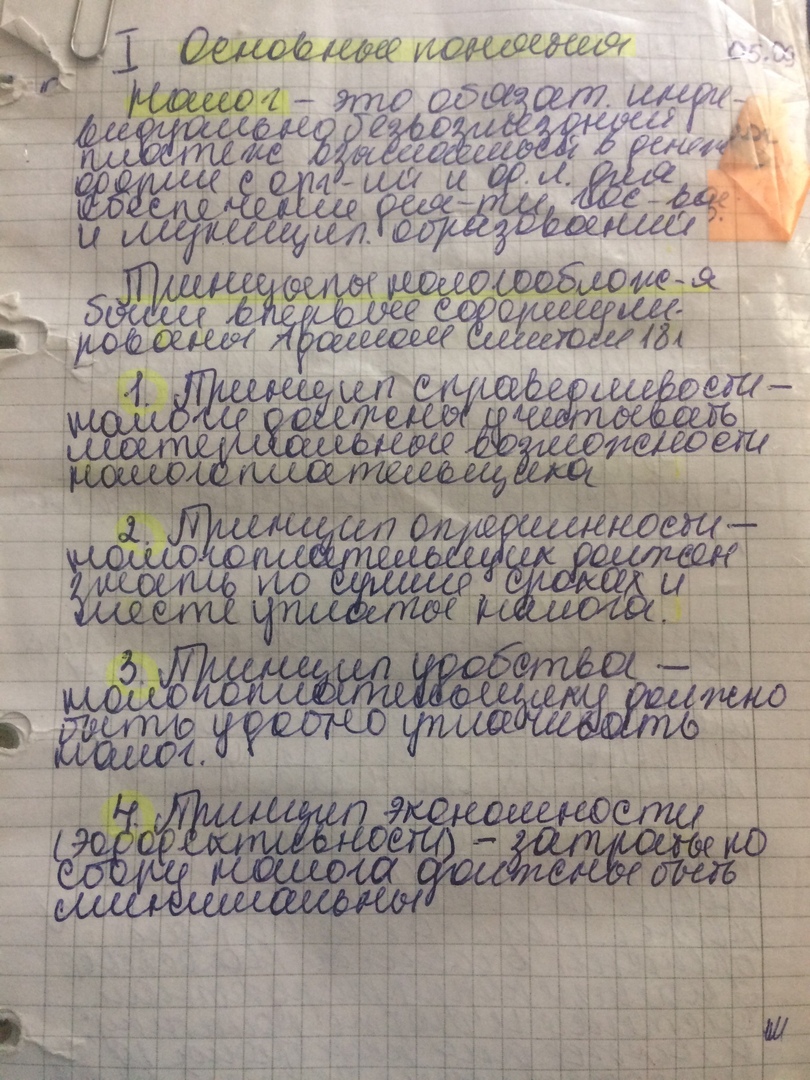 I Основные понятия
05.09
Налог – это обязат. инди-
видуально безвозмездный
платеж взымаемый в денеж
форме с орг-ий и ф.л. для
обеспечения дея-ти гос-ва
и муницип. образований
Принцыпы налогооблож-я
были впервые сформули-
рованы Адамом Смитом 18в
1. Принцип справедливости –
налоги должны учитывать
материальные возможности
налогоплательщика
2. Принцип определенности –
налогоплательщик должен
знать по сумме, сроках и
месте уплаты налога.
3. Принцип удобства –
налогоплательщику должно
быть удобно уплачивать
налог.
4. Принцип экономности
(эффективности) – затраты по
сбору налога должны быть
минимальны